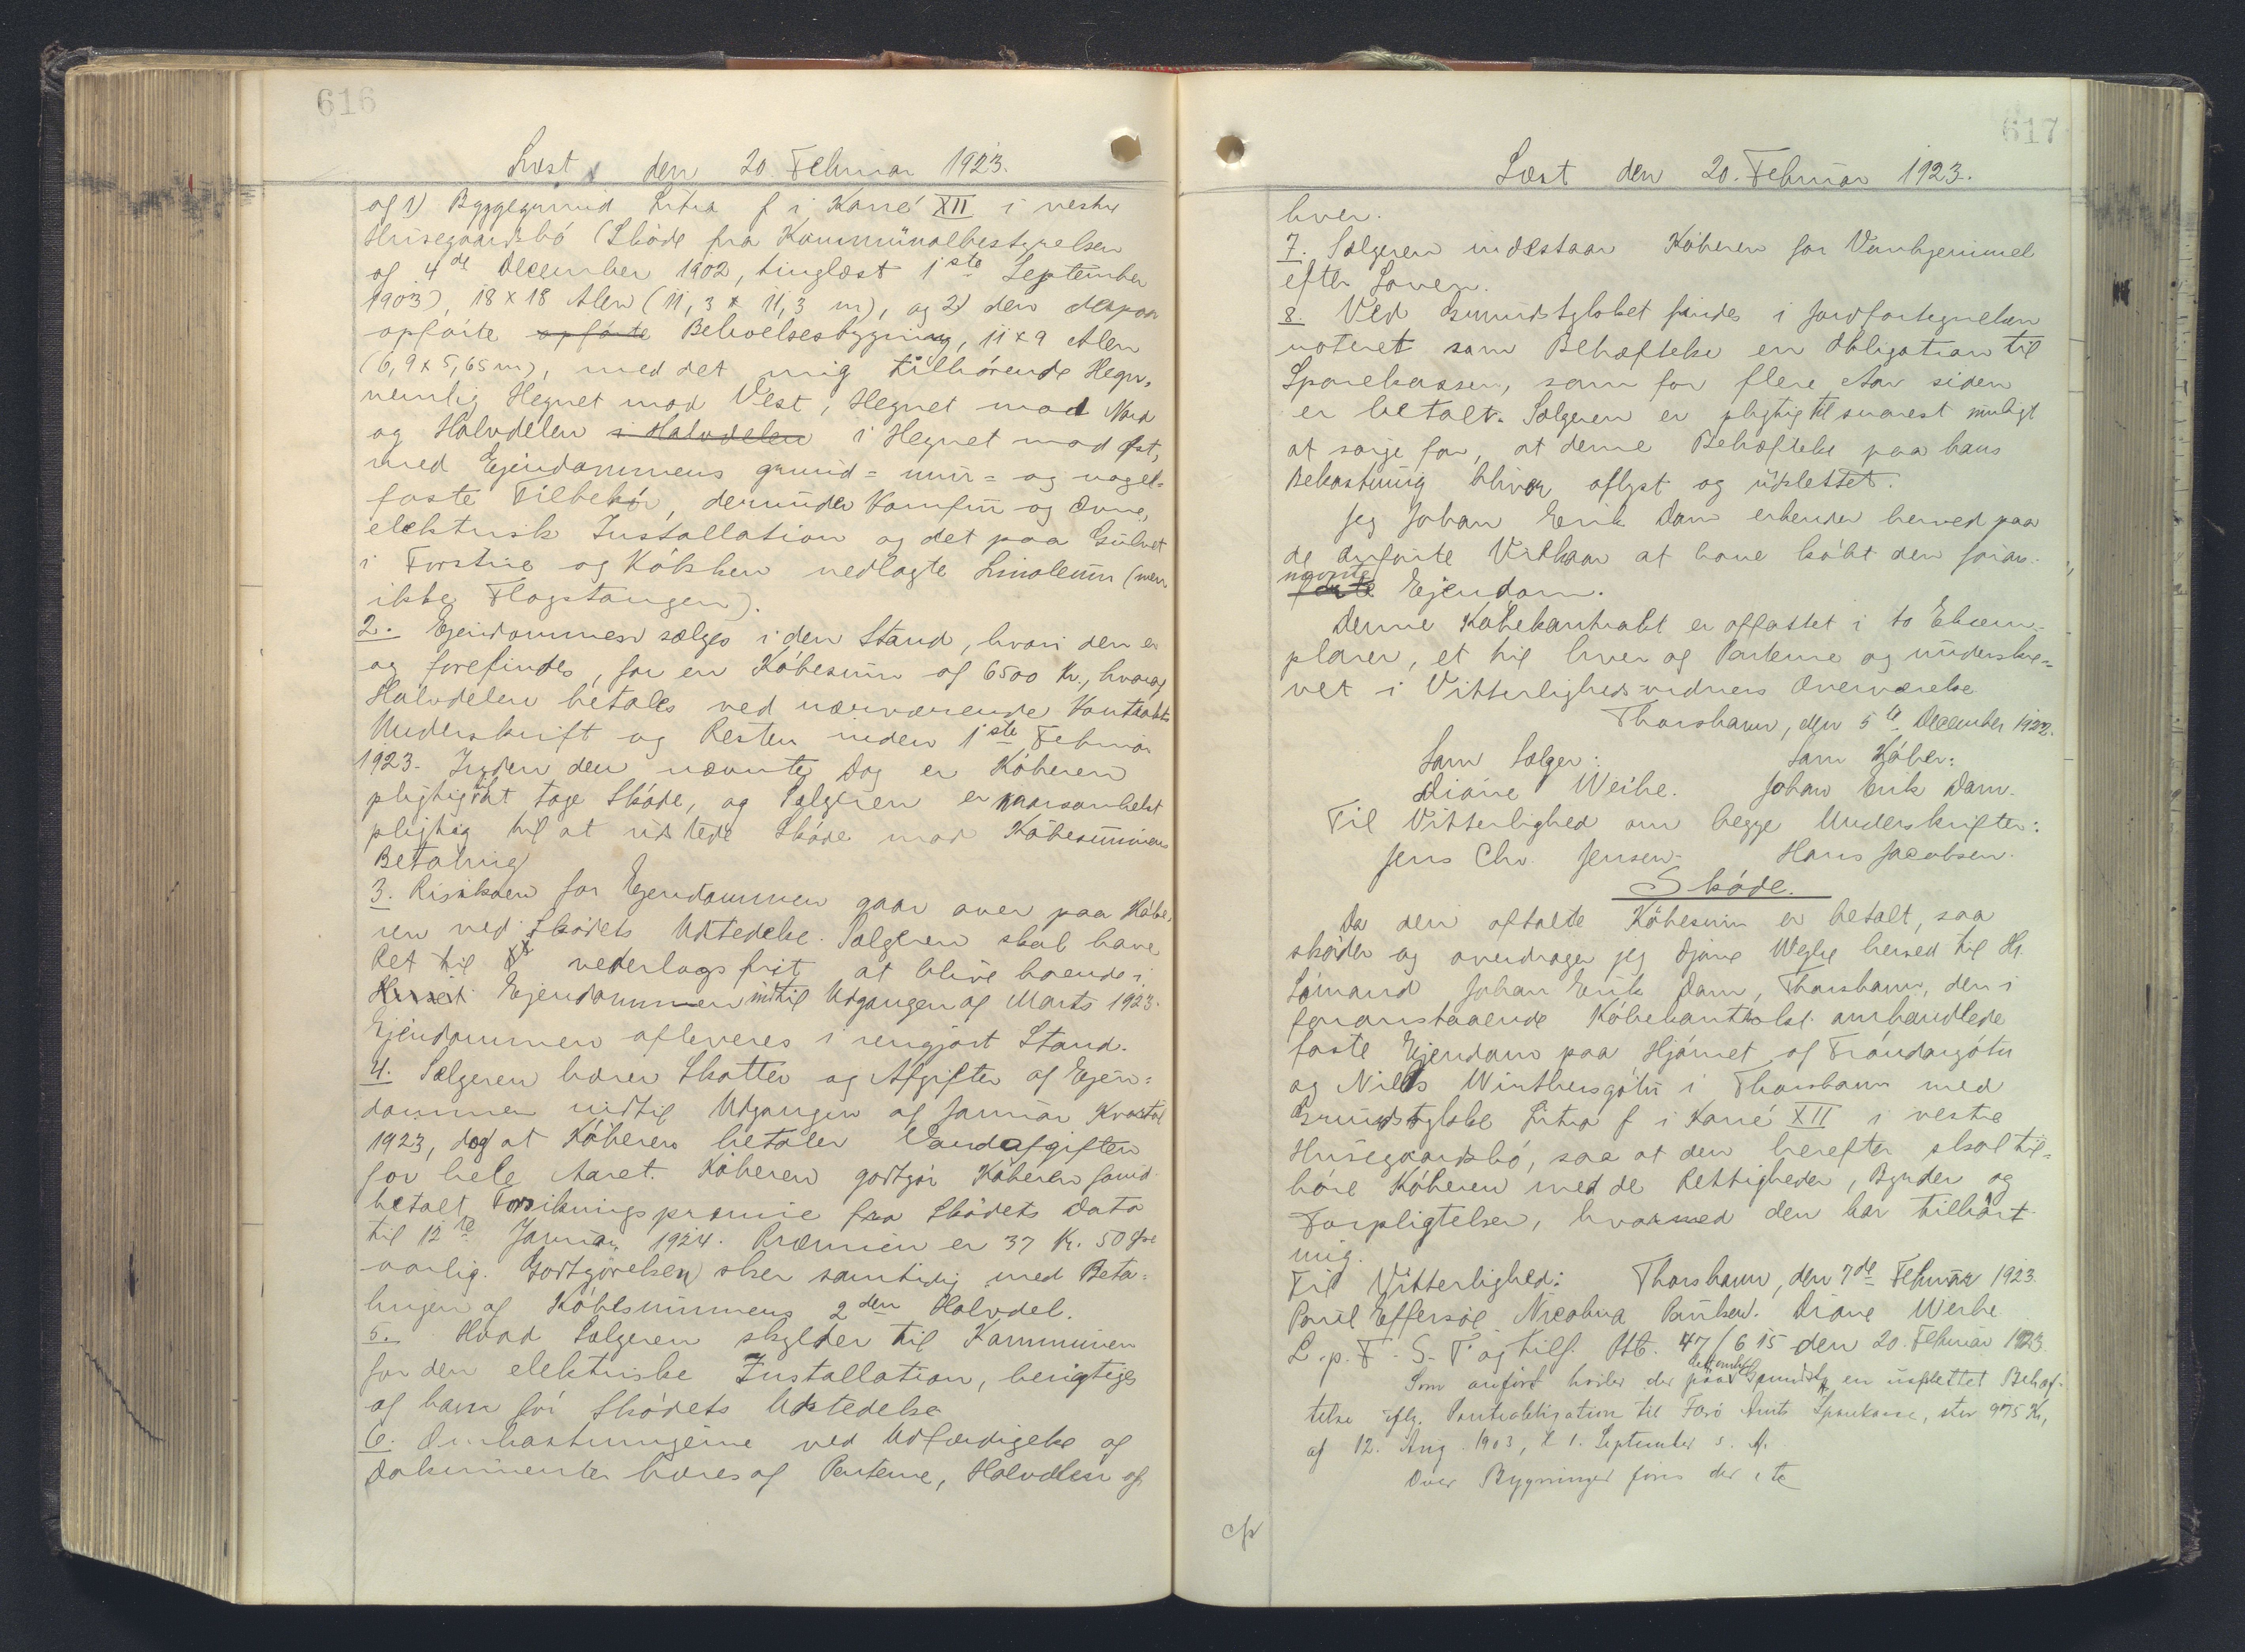 616
Læst den 20. Februar 1923.
af 1) Byggegrund Litra f i Karré XII i vestre
Húsegaardsbó (Skóde fra Kommunalbestyrelsen
af 4de December 1902, tinglæst 1ste September
1903), 18 x 18 Alen (11,3 x 11,3 m), og 2) den derpaa
opfórte opfórte Beboelsesbygning, 11 x 9 Alen
(6,9 x 5,65 m), med det mig tilhórende Hegn,
nemlig Hegnet mod Vest, Hegnet mod Nord
og Halvdelen i Halvdelen i Hegnet mod Øst,
med Ejendommens grund= mur= og nagel=
faste Tilbehór, derunder Komfur og Ovne,
elektrisk Installation og det paa Gulvet
i Forstue og Kókken nedlagte Linoleum (men
ikke Flagstangen).
2. Ejendommen sælges i den Stand, hvori den er
og forefindes, for en Kóbesum af 6500 Kr., hvoraf
Halvdelen betales ved nærværende Kontrakts
Underskrift og Resten inden 1ste Februar
1923. Inden den nævnte Dag er Kóberen
pligtig at tage Skóde, og Sælgeren er naarsomhelst
pligtig til at udstede Skóde mod Kóbesummens
Betaling
3. Risikoen for Ejendommen gaar over paa Kóbe=
ren ved Skódets Udstedelse. Sælgeren skal have
Ret til vederlagsfrit at blive boende i
Huset Ejendommen indtil Udgangen af Marts 1923.
Ejendommen afleveres i rengjort Stand.
4. Sælgeren bærer Skatter og Afgifter af Ejen=
dommen indtil Udgangen af Januar Kvartal
1923, dog at Kóberen betaler Vandafgiften
for hele Aaret. Kóberen godtgór Kóberen forud
betalt Forsikringspræmie fra Skódets Dato
til 12te Januar 1924. Præmien er 37 Kr. 50 Øre
aarlig. Godtgórelsen sker samtidig med Beta=
lingen af Kóbesummens 2den Halvdel.
5. Hvad Sælgeren skylder til Kommunen
for den elektriske Installation, berigtiges
af ham fór Skódets Udstedelse
6. Omkostningerne ved Udfærdigelse af
Dokumenter bæres af Parterne, Halvdelen af
617
Læst den 20. Februar 1923.
hver.
7. Sælgeren indestaar Kóberen for Vanhjemmel
efter Loven.
8. Ved Grundstykket findes i Jordfortegnelsen
noteret som Behæftelse en Obligation til
Sparekassen, som for flere Aar siden
er betalt. Sælgeren er pligtig til snarest muligt
at sórge for, at denne Behæftelse paa hans
Bekostning bliver aflyst og udslettet.
Jeg Johan Erik Dam erkender herved paa
de anfórte Vilkaar at have kóbt den foran-
nævnte
Ejendom.
Denne Kóbekontrakt er affattet i to Eksem-
plarer, et til hver af Parterne og underskre=
vet i Vitterlighedsvidners Overværelse
Thorshavn, den 5te December 1922.
Som Sælger: Som Kóber:
Diane Weihe. Johan Erik Dam.
Til Vitterlighed om begge Underskrifter:
Jens Chr. Jensen. Hans Jacobsen.
Skóde.
Da den aftalte Kóbesum er betalt, saa
skóder og overdrager jeg Djane Weyhe herved til Hr.
Sómand Johan Erik Dam, Thorshavn, den i
foranstaaende Kóbekontrakt omhandlede
faste Ejendom paa Hjórnet af Tróndargótu
og Niels Winthersgótu i Thorshavn med
Grundstykke Litra f i Karré XII i vestre
Húsegaardsbó, saa at den herefter skal til=
hóre Kóberen med de Rettigheder, Byrder og
Forpligtelser, hvormed den har tilhórt
mig.
Til Vitterlighed: Thorshavn, den 7de Februar 1923.
Poul Effersøe Nicolina Poulsen. Diane Weihe
L. p. F. S. T og tilf. Ptb. 47/615 den 20. Februar 1923.
Som anfórt hviler der paa Grundstk en uudslettet Behæf-
telse iflg. Pantobligation til Færó Amts Sparekasse, stor 975 Kr,
af 12. Aug. 1903, t 1. September s. A.
Over Bygninger fóres der